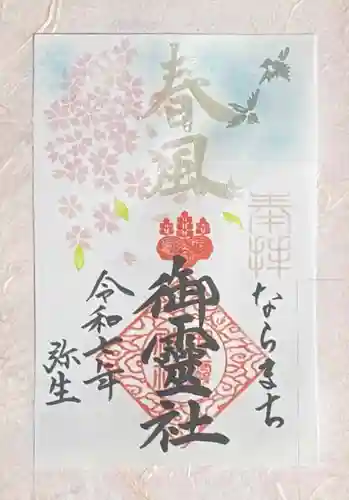 春風
奉拝
ならまち
御霊社
令和七年
弥生